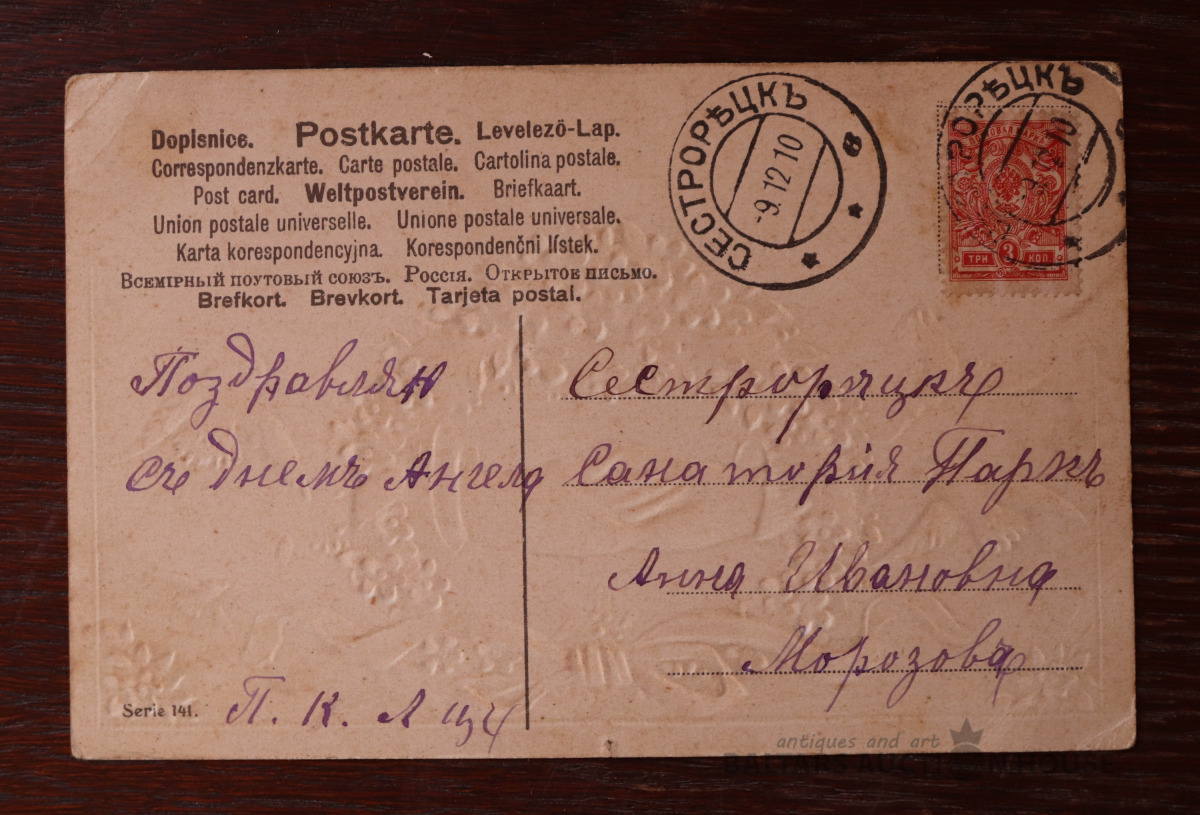 Dopisnice. Postkarte. Levelezö-Lap.
Correspondenzkarte. Carte postale. Cartolina postale.
Post card. Weltpostverein. Briefkaart.
Union postale universelle. Unione postale universale.
Karta korespondencyjna. Korespondenčni lístek.
Всемірный поутовый союзъ. Россія. Открытое письмо.
Brefkort. Brevkort. Tarjeta postal.
СЕСТРОРѢЦКЪ
-9.12.10
в
РОРѢЦКЪ
ТРИ 3 КОП.
Поздравляю
съ Днемъ Ангела
П. К.
Serie 141.
Сестрорѣцкъ
Санаторія Паркъ
Анна Ивановна
Морозова
antiques and art
BALTARS AUCTION HOUSE